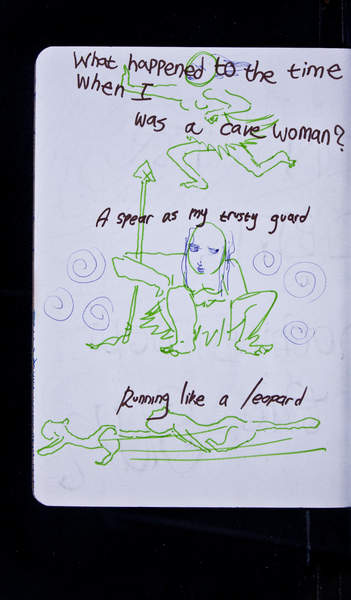 What happened to the time
when I
was a cave woman?
A spear as my trusty guard
Running like a leopard